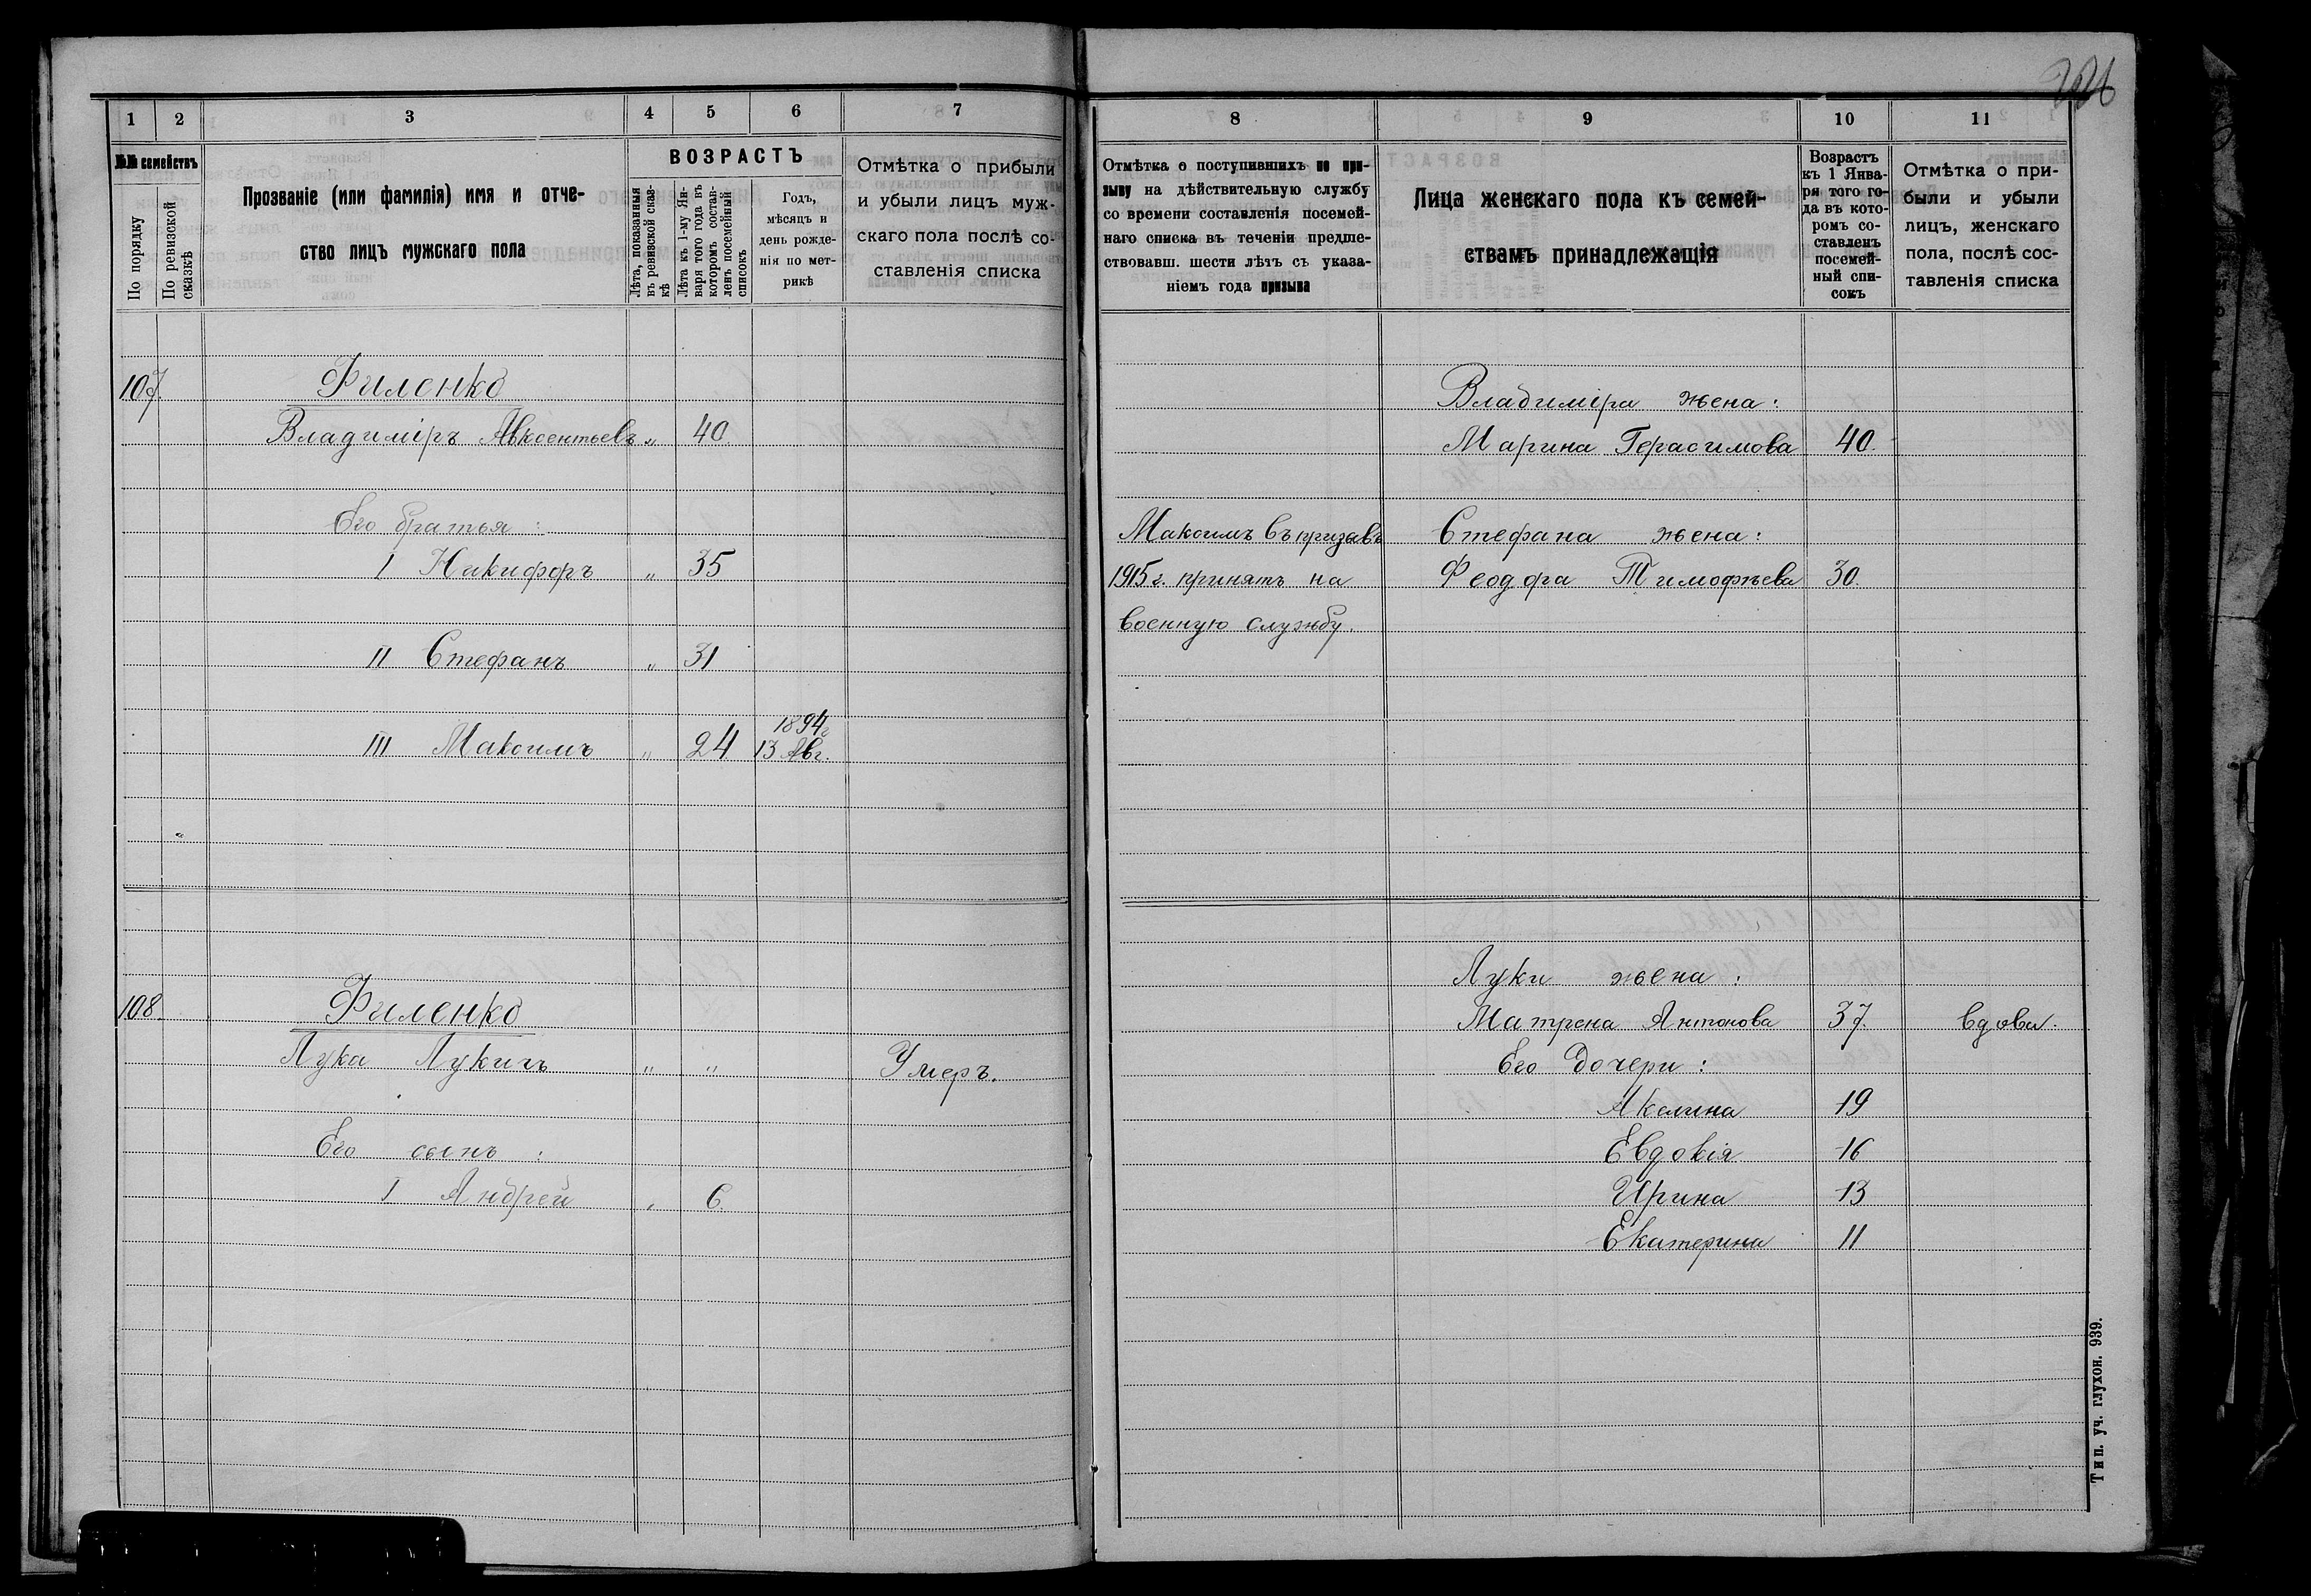 226
1 2 3 4 5 6 7
№№ семействъ
По порядку
По ревизской сказкѣ
Прозваніе (или фамилія) имя и отче-
ство лицъ мужскаго пола
ВОЗРАСТЪ
Лѣта, показанныя
въ ревизской сказ-
кѣ
Лѣта къ 1-му Ян-
варя того года въ
которомъ состав-
ленъ посемейный
списокъ
Годъ,
мѣсяцъ и
день рожде-
нія по мет-
рикѣ
Отмѣтка о прибыли
и убыли лицъ муж-
скаго пола послѣ со-
ставленія списка
107.
Филенко
Владиміръ Авксентьевъ „ 40.
Его братья:
I Никифоръ „ 35
II Стефанъ „ 31
III Максимъ „ 24 1894г
13 Авг.
108
Филенко
Лука Лукичъ „ „ Умеръ.
Его сынъ:
I Андрей „ 6
8 9 10 11
Отмѣтка о поступившихъ по при-
зыву на дѣйствительную службу
со времени составленія посемей-
наго списка въ теченіи предше-
ствовавш. шести лѣтъ съ указа-
ніемъ года призыва
Лица женскаго пола къ семей-
ствамъ принадлежащія
Возрастъ
къ 1 Янва-
ря того го-
да въ кото-
ромъ со-
ставленъ
посемей-
ный спи-
сокъ
Отмѣтка о при-
были и убыли
лицъ, женскаго
пола, послѣ сос-
тавленія списка
Владиміра жена:
Марина Герасимова 40.
Максимъ въ призывъ Стефана жена:
1915 г. принятъ на Феодора Тимофѣева 30.
военную службу.
Луки жена:
Матрена Антонова 37. вдова.
Его дочери:
Акелина 19
Евдокія 16
Ирина 13
Екатерина 11
Тип. уч. глухон. 939.